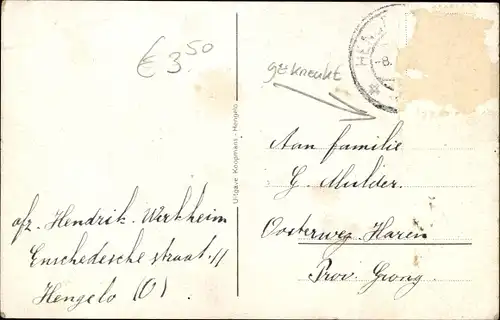 € 3.50
gekneukt
HEN
-8.
Uitgave Koopmans - Hengelo
Aan familie
G. Mulder.
Oosterweg. Haren
Prov. Grong.
afz. Hendrik. Wirtheim
Enschedesche straat. 11
Hengelo (O)